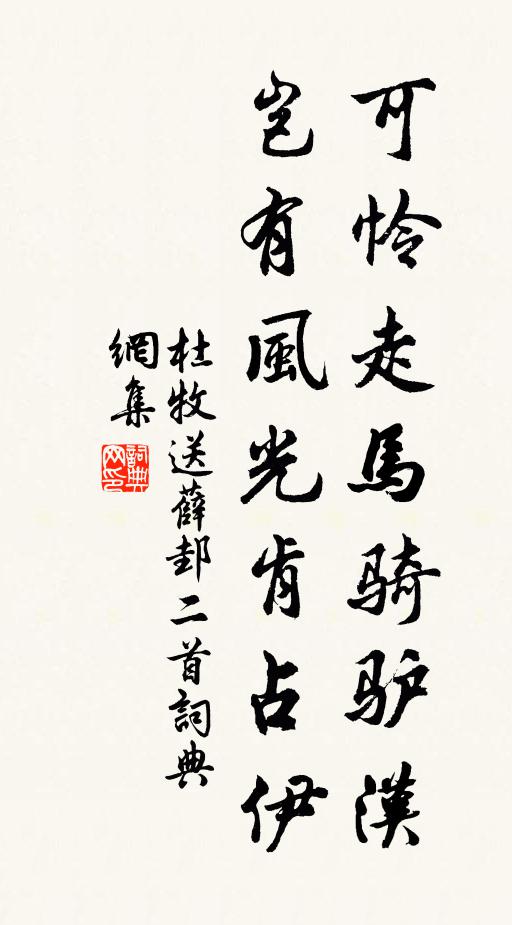 可怜走馬骑驴漢
岂有風光肯占伊
杜牧送薛邽二首詞典
網集
詞典
网印